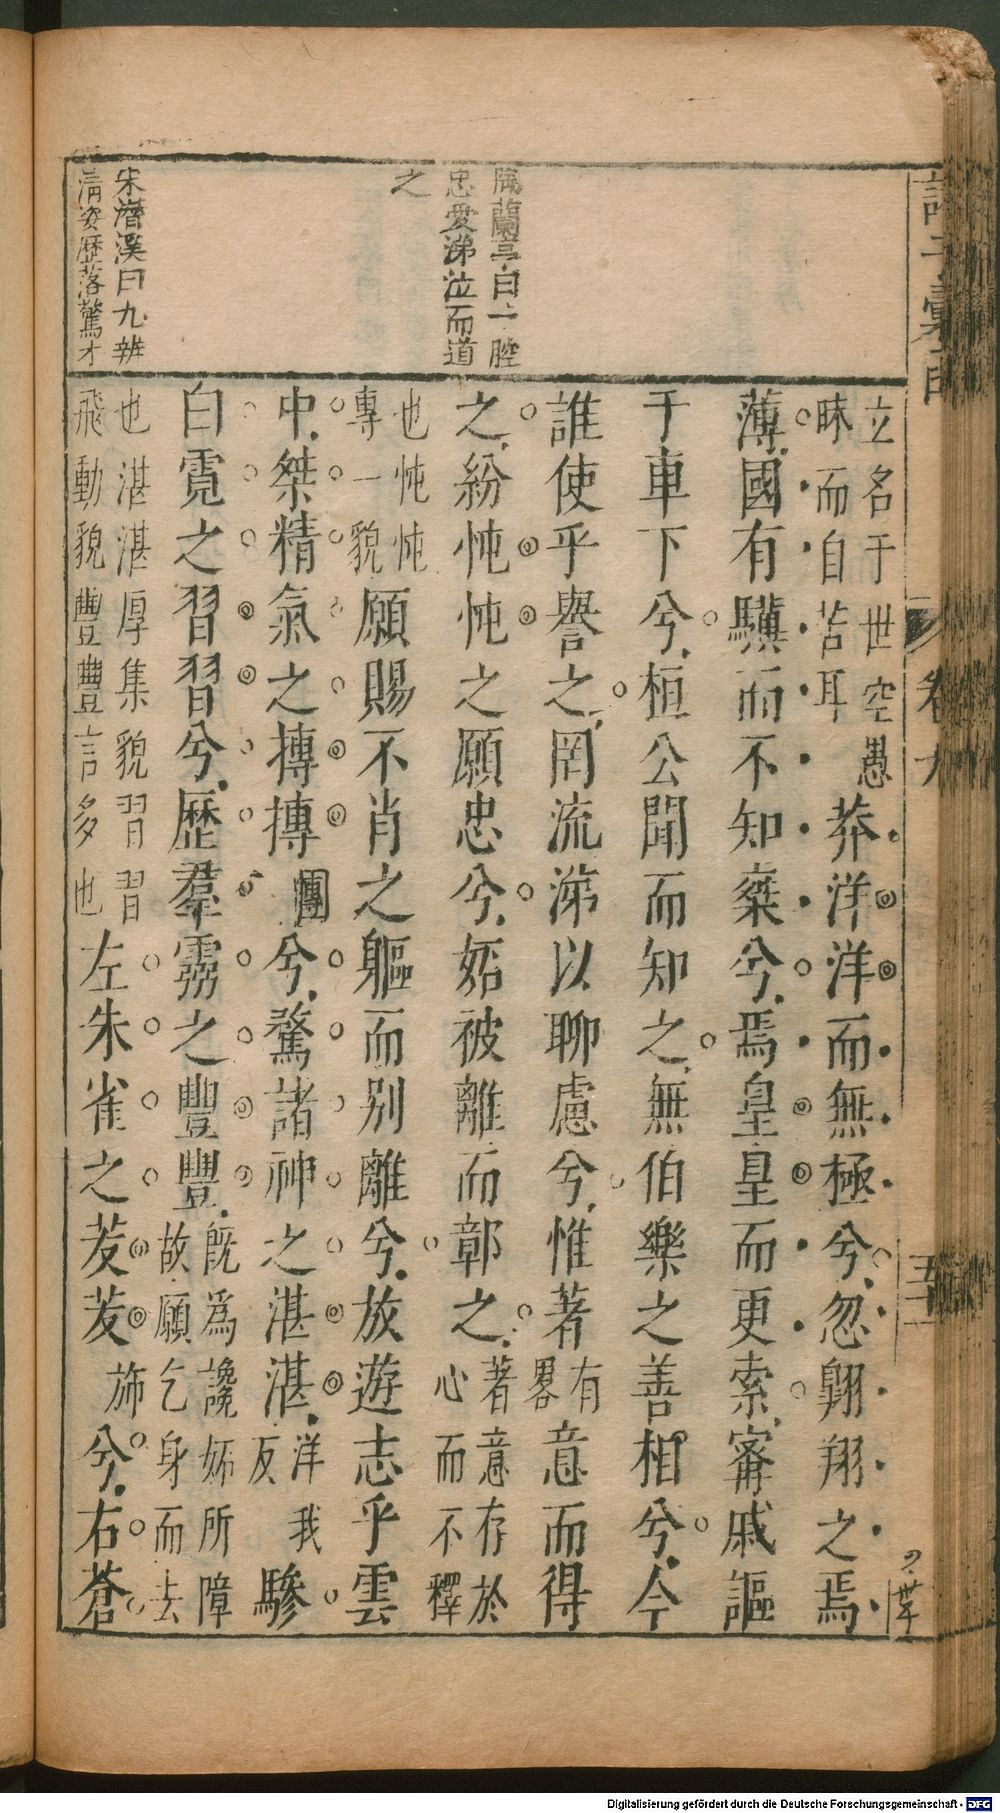 宋潛溪曰九辨
清姿歷落驚才
蘭亭曰一腔
忠愛涕泣而道
之
立名于世空愚
昧而自苦耳
莽洋洋而無極兮忽翺翔之焉
薄國有驥而不知椉兮焉皇皇而更索甯戚謳
于車下兮桓公聞而知之無伯樂之善相兮今
誰使乎譽之罔流涕以聊慮兮惟著有畧意而得
之紛忳忳之願忠兮妬被離而鄣之著意存於心而不釋
也忳忳專一貌願賜不肖之軀而别離兮放遊志乎雲
中桀精氣之摶摶團兮騖諸神之湛湛洋友我驂
白霓之習習兮歷羣靈之豐豐既為讒妬所障故願乞身而去
也湛湛厚集貌習習飛動貌豐豐言多也左朱雀之茇茇旆兮右蒼
卷九
五十一
Digitalisierung gefördert durch die Deutsche Forschungsgemeinschaft - DFG